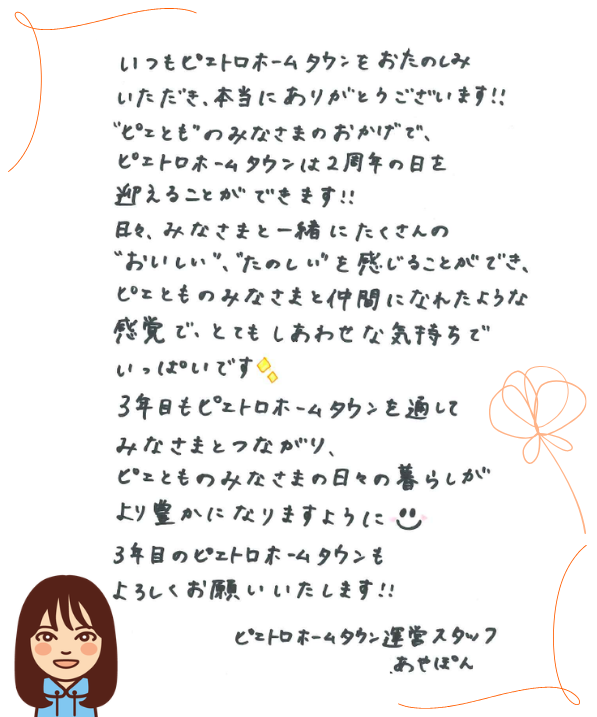 いつもピエトロホームタウンをおたのしみ
いただき、本当にありがとうございます!!
"ピエとも"のみなさまのおかげで、
ピエトロホームタウンは2周年の日を
迎えることができます!!
日々、みなさまと一緒にたくさんの
"おいしい"、"たのしい"を感じることができ、
ピエとものみなさまと仲間になれたような
感覚で、とてもしあわせな気持ちで
いっぱいです
3年目もピエトロホームタウンを通して
みなさまとつながり、
ピエとものみなさまの日々の暮らしが
より豊かになりますように
3年目のピエトロホームタウンも
よろしくお願いいたします!!
ピエトロホームタウン運営スタッフ
あやぽん